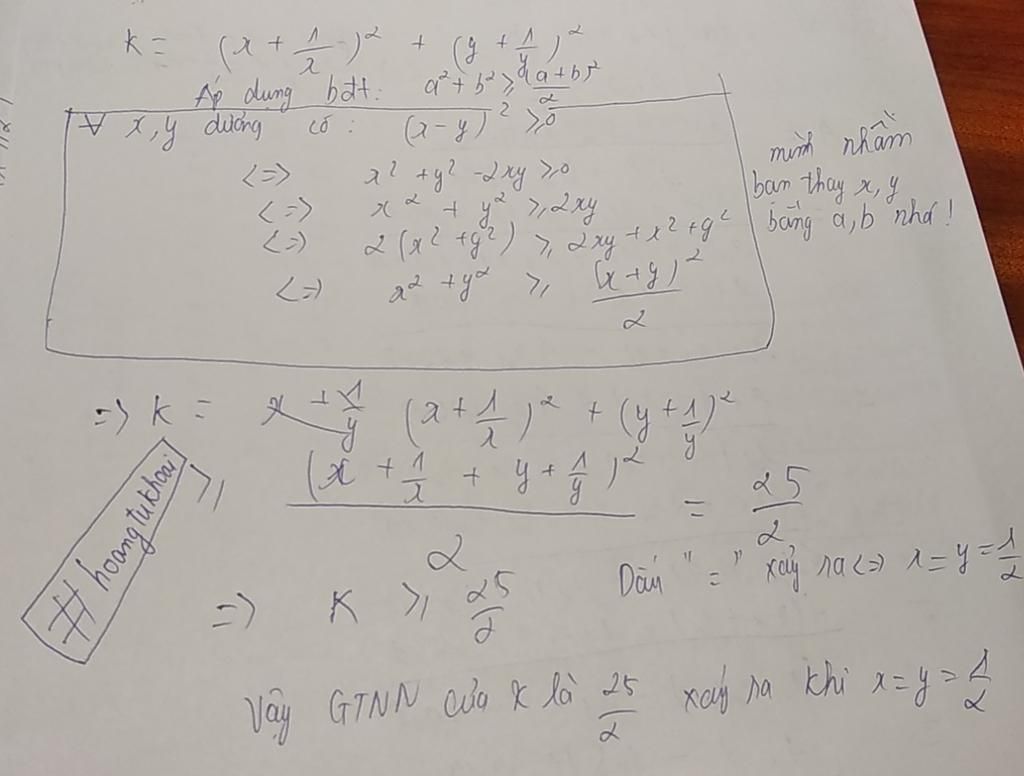 K = (x + 1/x)² + (y + 1/y)²
Áp dụng bđt: a² + b² ≥ (a+b)²/2
∀ x, y dương có: (x-y)² ≥ 0
<=> x² + y² - 2xy ≥ 0
<=> x² + y² ≥ 2xy
<=> 2(x² + y²) ≥ 2xy + x² + y²
<=> x² + y² ≥ (x+y)²/2
mình nhầm
bạn thay x, y
bằng a, b nhá!
=> K = (x + 1/x)² + (y + 1/y)²
≥ (x + 1/x + y + 1/y)²/2 = 25/2
#hoangtukhoai
Dấu "=" xảy ra <=> x = y = 1/2
=> K ≥ 25/2
Vậy GTNN của K là 25/2 xảy ra khi x = y = 1/2